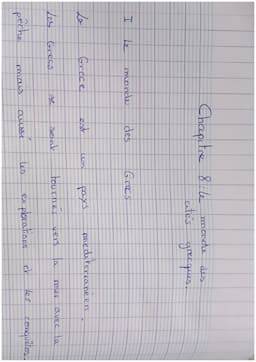 Chapitre 8 : le monde des
cités grecques.
I Le monde des Grecs
La Grèce est un pays méditerranéen.
Les Grecs se sont tournés vers la mer avec la
pêche mais aussi les explorations et les conquêtes.